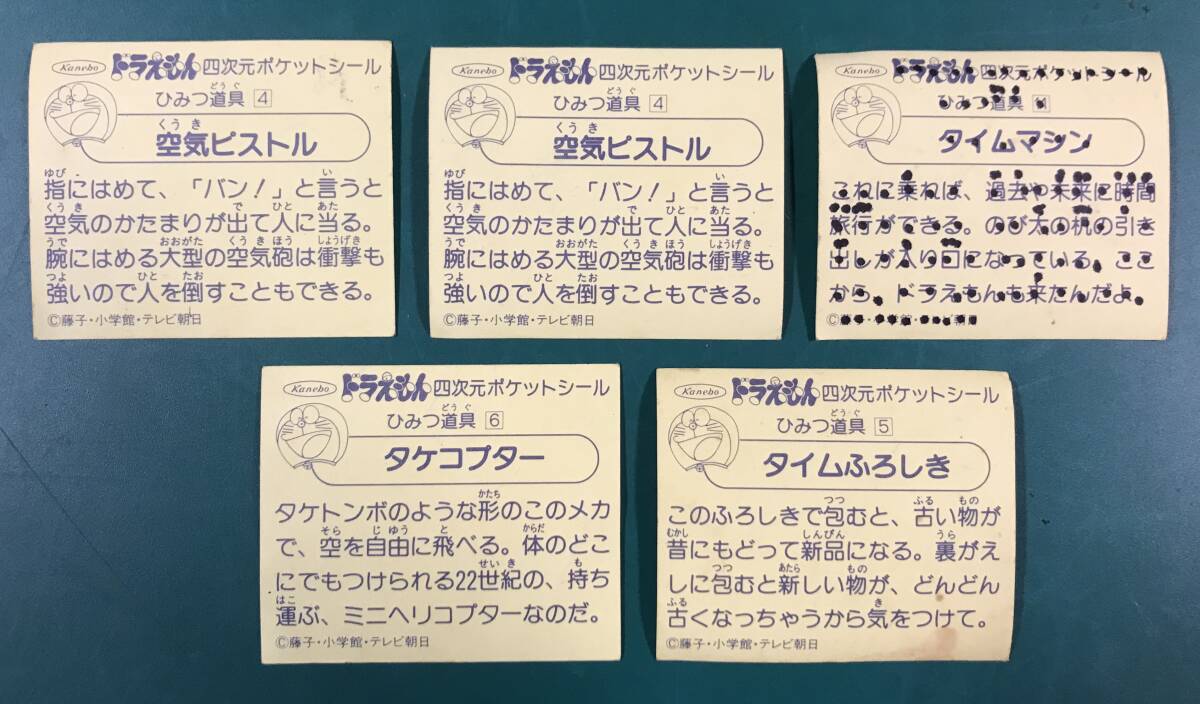 Kanebo ドラえもん 四次元ポケットシール
ひみつ道具 4
空気ピストル
指にはめて、「バン！」と言うと
空気のかたまりが出て人に当る。
腕にはめる大型の空気砲は衝撃も
強いので人を倒すこともできる。
©藤子・小学館・テレビ朝日
Kanebo ドラえもん 四次元ポケットシール
ひみつ道具 4
空気ピストル
指にはめて、「バン！」と言うと
空気のかたまりが出て人に当る。
腕にはめる大型の空気砲は衝撃も
強いので人を倒すこともできる。
©藤子・小学館・テレビ朝日
Kanebo ドラえもん 四次元ポケットシール
ひみつ道具
タイムマシン
これに乗れば、過去や未来に時間
旅行ができる。のび太の机の引き
出しが入り口になっている。ここ
から、ドラえもんも来たんだよ。
©藤子・小学館・テレビ朝日
Kanebo ドラえもん 四次元ポケットシール
ひみつ道具 6
タケコプター
タケトンボのような形のこのメカ
で、空を自由に飛べる。体のどこ
にでもつけられる22世紀の、持ち
運ぶ、ミニヘリコプターなのだ。
©藤子・小学館・テレビ朝日
Kanebo ドラえもん 四次元ポケットシール
ひみつ道具 5
タイムふろしき
このふろしきで包むと、古い物が
昔にもどって新品になる。裏がえ
しに包むと新しい物が、どんどん
古くなっちゃうから気をつけて。
©藤子・小学館・テレビ朝日